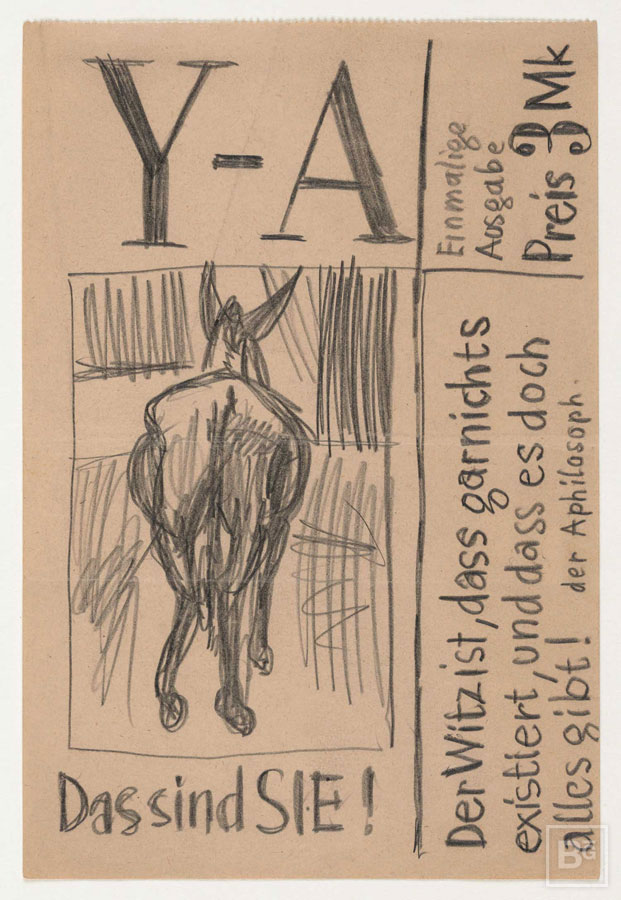 Y-A
Das sind SIE!
Einmalige
Ausgabe
Preis 3 Mk
Der Witz ist, dass garnichts
existiert, und dass es doch
alles gibt! der Aphilosoph.
BG